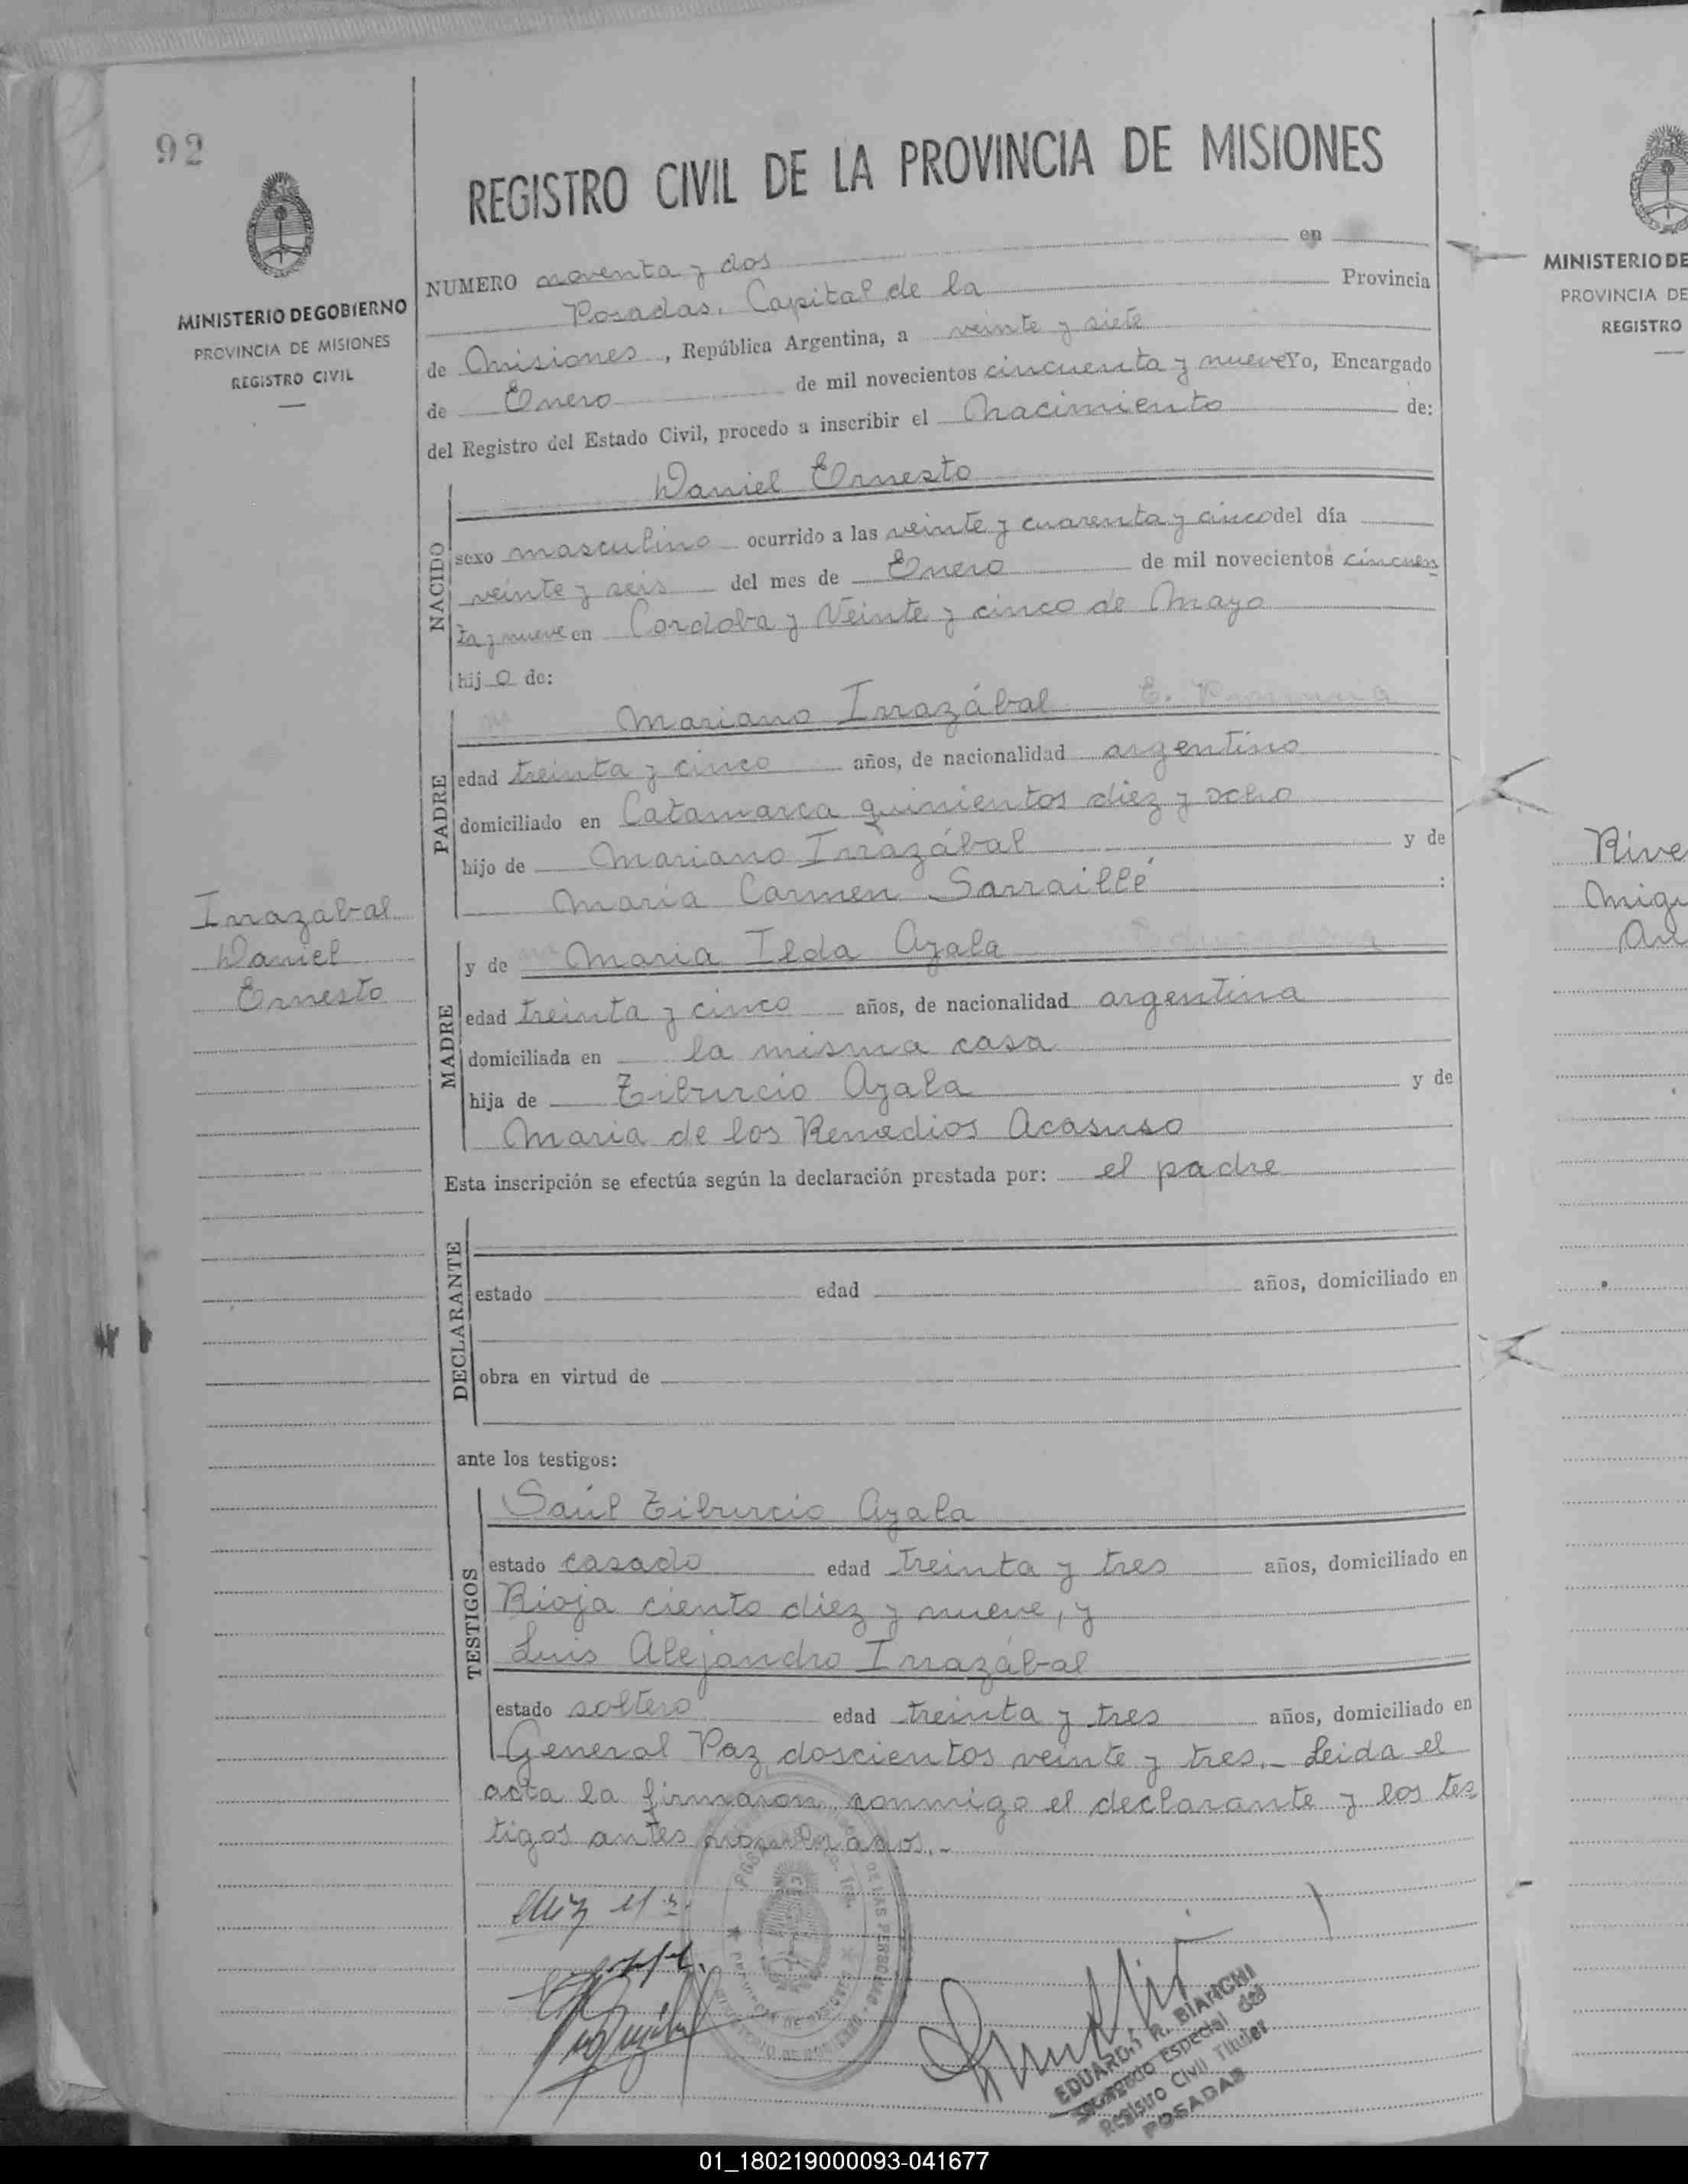 92
MINISTERIO DE GOBIERNO
PROVINCIA DE MISIONES
REGISTRO CIVIL
Irrazabal
Daniel
Ernesto
REGISTRO CIVIL DE LA PROVINCIA DE MISIONES
NUMERO noventa y dos en
Posadas, Capital de la Provincia
de Misiones, República Argentina, a veinte y siete
de Enero de mil novecientos cincuenta y nueve Yo, Encargado
del Registro del Estado Civil, procedo a inscribir el Nacimiento de:
NACIDO
Daniel Ernesto
sexo masculino ocurrido a las veinte y cuarenta y cinco del día
veinte y seis del mes de Enero de mil novecientos cincuen
ta y nueve en Cordoba y Veinte y cinco de Mayo
hijo de:
PADRE
Mariano Irrazábal
edad treinta y cinco años, de nacionalidad argentino
domiciliado en Catamarca quinientos diez y ocho
hijo de Mariano Irrazábal y de
María Carmen Sarraillé :
MADRE
y de Maria Ilda Ayala
edad treinta y cinco años, de nacionalidad argentina
domiciliada en la misma casa
hija de Tiburcio Ayala y de
Maria de los Remedios Acasuso
Esta inscripción se efectúa según la declaración prestada por: el padre
DECLARANTE
estado edad años, domiciliado en
obra en virtud de
ante los testigos:
TESTIGOS
Saúl Tiburcio Ayala
estado casado edad treinta y tres años, domiciliado en
Rioja ciento diez y nueve, y
Luis Alejandro Irrazábal
estado soltero edad treinta y tres años, domiciliado en
General Paz doscientos veinte y tres.- Leida el
acta la firmaron conmigo el declarante y los tes
tigos antes nombrados.-
EDUARDO R. BIANGHI
Encargado Especial del
Registro Civil Titular
POSADAS
MINISTERIO DE
PROVINCIA DE
REGISTRO
Rive
Migu
01_180219000093-041677